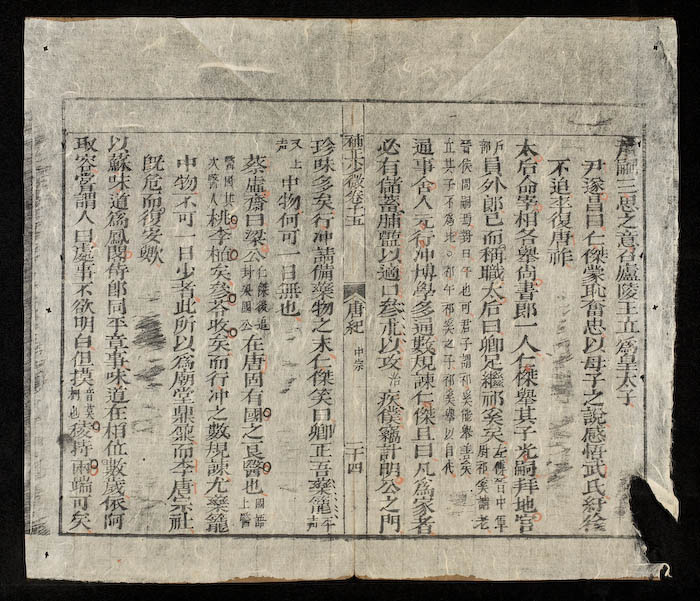 嗣三思之意召廬陵王立爲皇太子
尹遂昌曰仁傑蒙恥奮忠以母子之說感悟武氏紓徐
不迫卒復唐祚
太后命宰相各舉尚書郎一人仁傑舉其子光嗣拜地官
戶部員外郎已而稱職太后曰卿足繼祁奚矣
通事舍人元行沖博學多通數規諫仁傑且曰凡爲家者
必有儲蓄脯醢以適口參朮以攻疾僕竊計明公之門
珍味多矣行沖請備藥物之末仁傑笑曰卿正吾藥籠
中物何可一日無也
蔡虛齋曰梁公在唐固有國之良醫也
桃李植矣參苓收矣而行沖之數規諫尤藥籠
中物不可一日少者此所以爲廟堂鼎鼐而李唐宗社
旣危而復安歟
以蘇味道爲鳳閣侍郎同平章事味道在相位數歲依阿
取容嘗謂人曰處事不欲明白但摸稜持兩端可矣
補正少微卷十五
唐紀
中宗
二十四